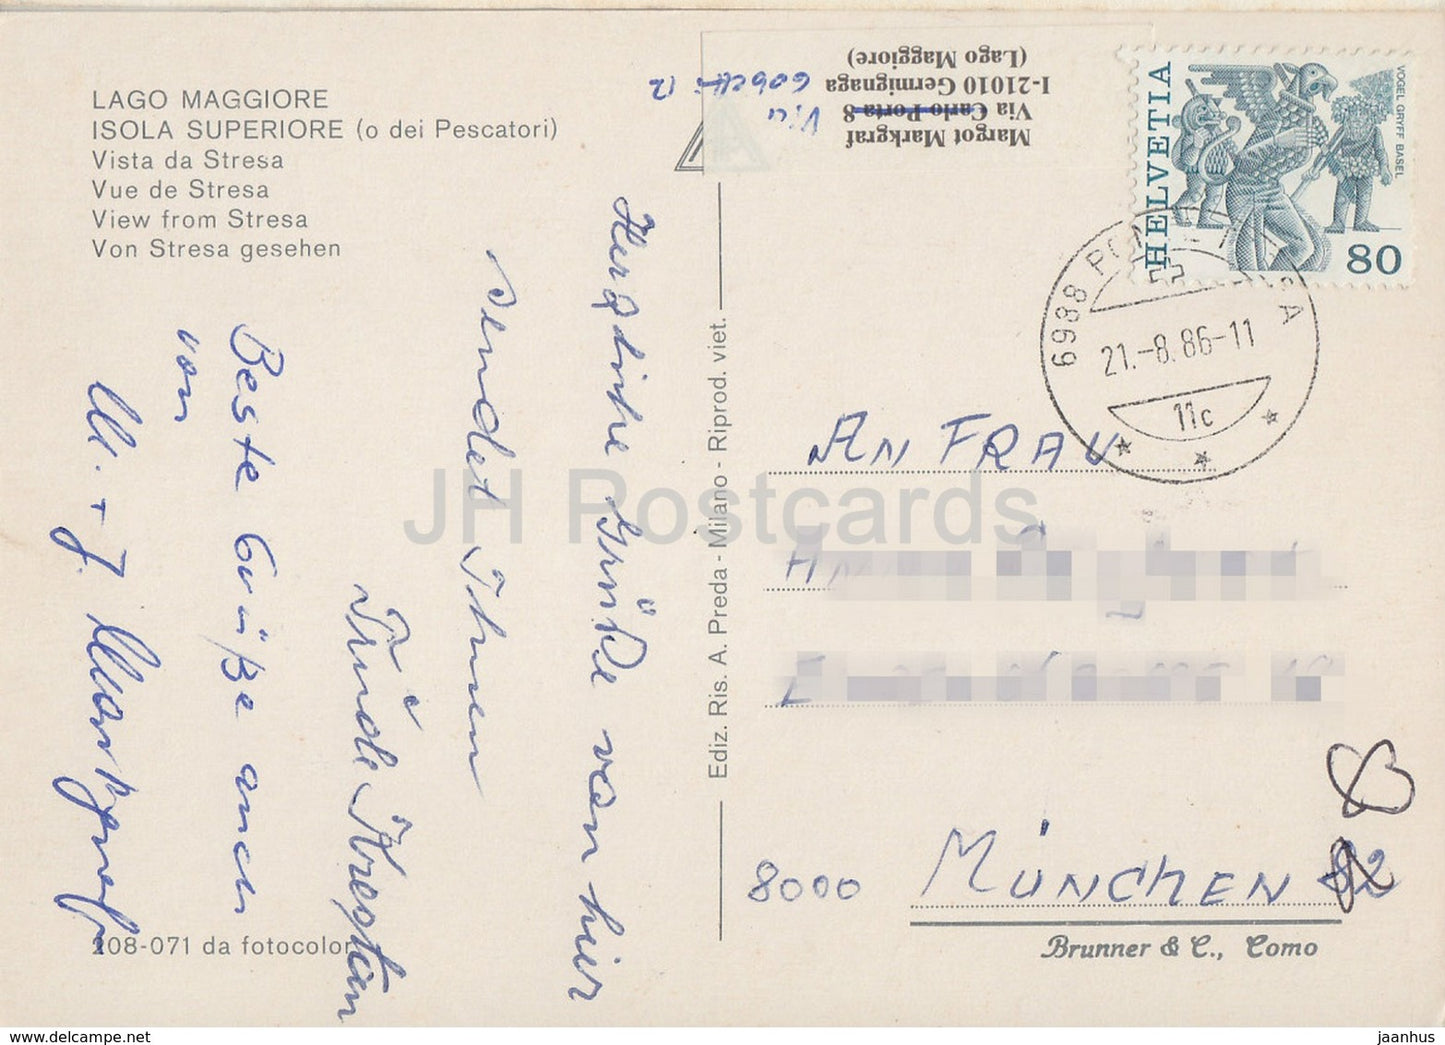 LAGO MAGGIORE
ISOLA SUPERIORE (o dei Pescatori)
Vista da Stresa
Vue de Stresa
View from Stresa
Von Stresa gesehen
Margot Markgraf
Via Carlo Porta 8
Via Gobetti 12
I-21010 Germignaga
(Lago Maggiore)
HELVETIA
VOGEL GRYFF BASEL
80
6988 PONTE TRESA
21.-8.86-11
11c
Herzliche Grüße von hier
sendet Ihnen
Trude Krepstan
Beste Grüße auch
von
M. + J. Markgraf
Ediz. Ris. A. Preda - Milano - Riprod. viet.
AN FRAU
8000 MÜNCHEN 82
Brunner & C., Como
208-071 da fotocolor
JH Postcards
www.delcampe.net
jaanhus